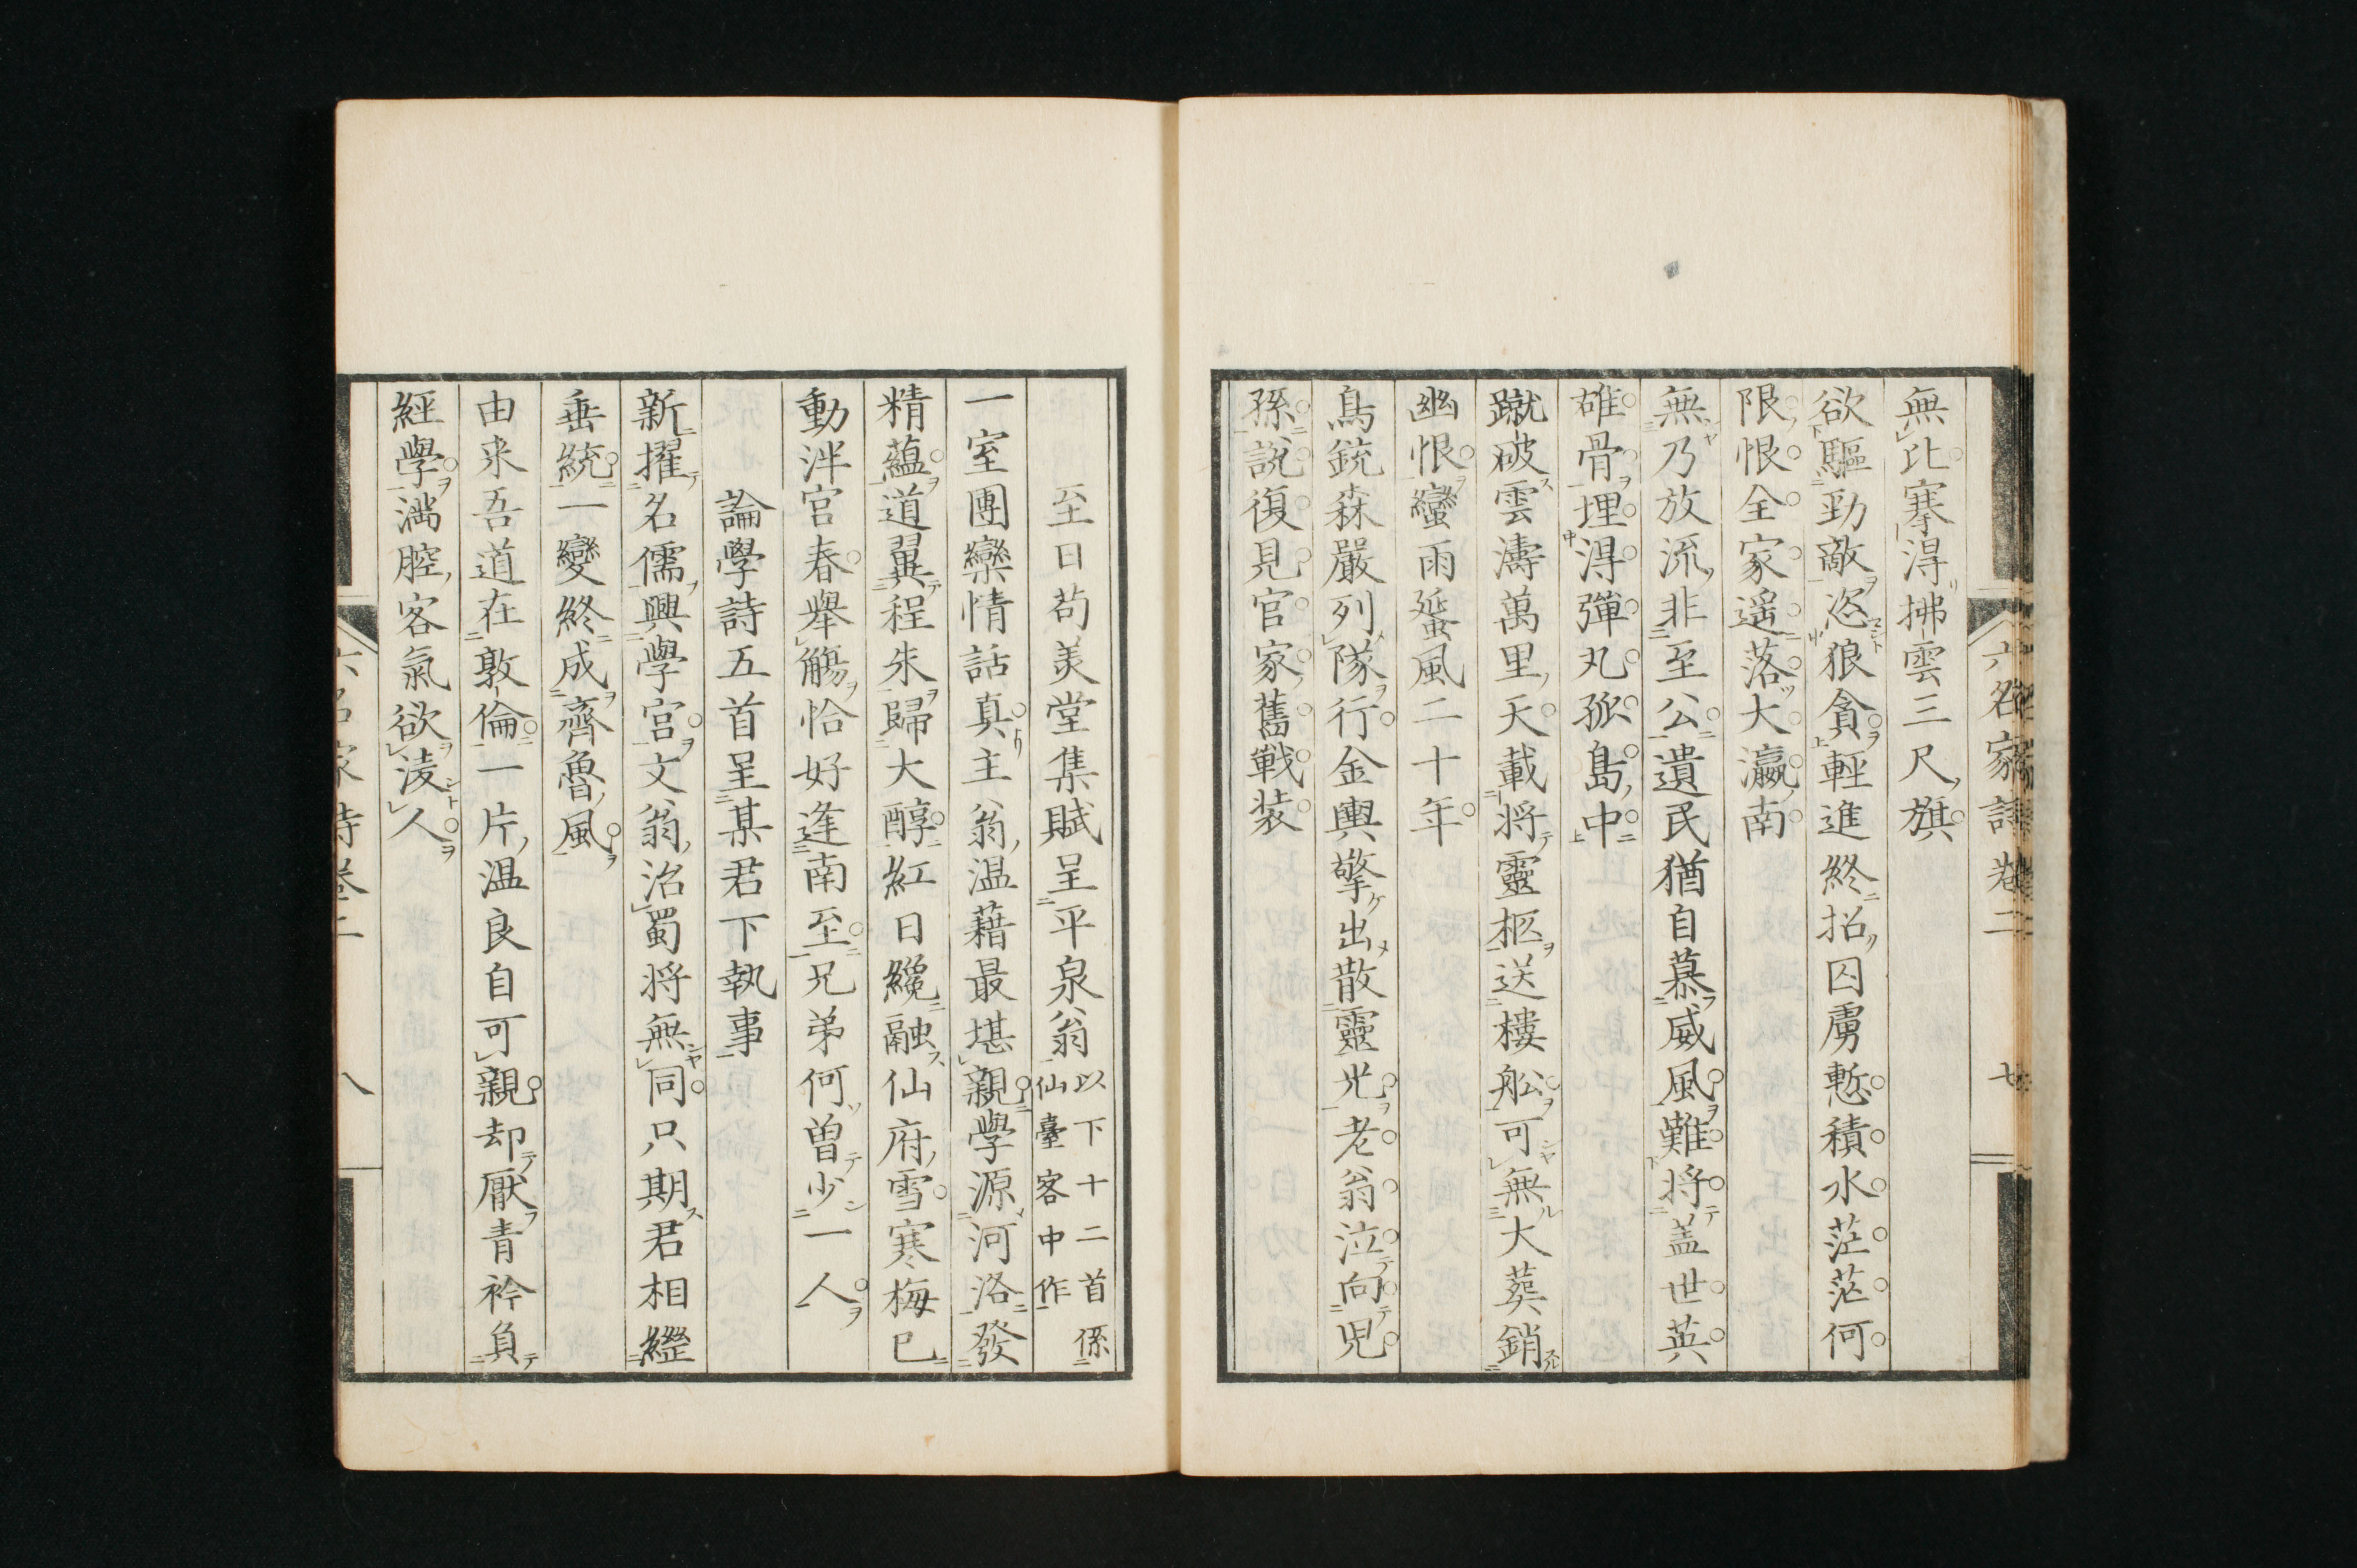 六名家詩卷二
七
無比搴得拂雲三尺旗
欲驅勁敵恣狼貪輕進終招囚虜慙積水茫茫何
限恨全家遥落大瀛南
無乃放流非至公遺民猶自慕威風難将盖世英
雄骨埋得彈丸孤島中
蹴破雲濤萬里天載将靈柩送樓舩可無大葬銷
幽恨蠻雨蜑風二十年
鳥銃森嚴列隊行金輿擎出散靈光老翁泣向児
孫説復見官家舊戦装
至日苟美堂集賦呈平泉翁以下十二首係
仙臺客中作
一室團欒情話真主翁温藉最堪親學源河洛發
精蘊道翼程朱歸大醇紅日纔融仙府雪寒梅已
動泮宮春舉觴恰好逢南至兄弟何曽少一人
論學詩五首呈某君下執事
新擢名儒興學宮文翁治蜀将無同只期君相繼
垂統一變終成齊魯風
由来吾道在敦倫一片温良自可親却厭青衿負
經學満腔客氣欲凌人
六名家詩卷二
八